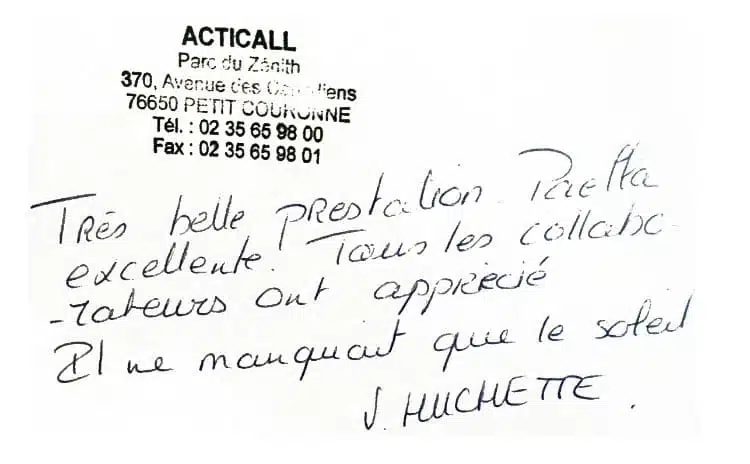 ACTICALL
Parc du Zénith
370, Avenue des Canadiens
76650 PETIT COURONNE
Tél. : 02 35 65 98 00
Fax : 02 35 65 98 01
Très belle prestation. Paella
excellente! Tous les collabo-
-rateurs ont apprécié
Il ne manquait que le soleil
J. HUCHETTE.